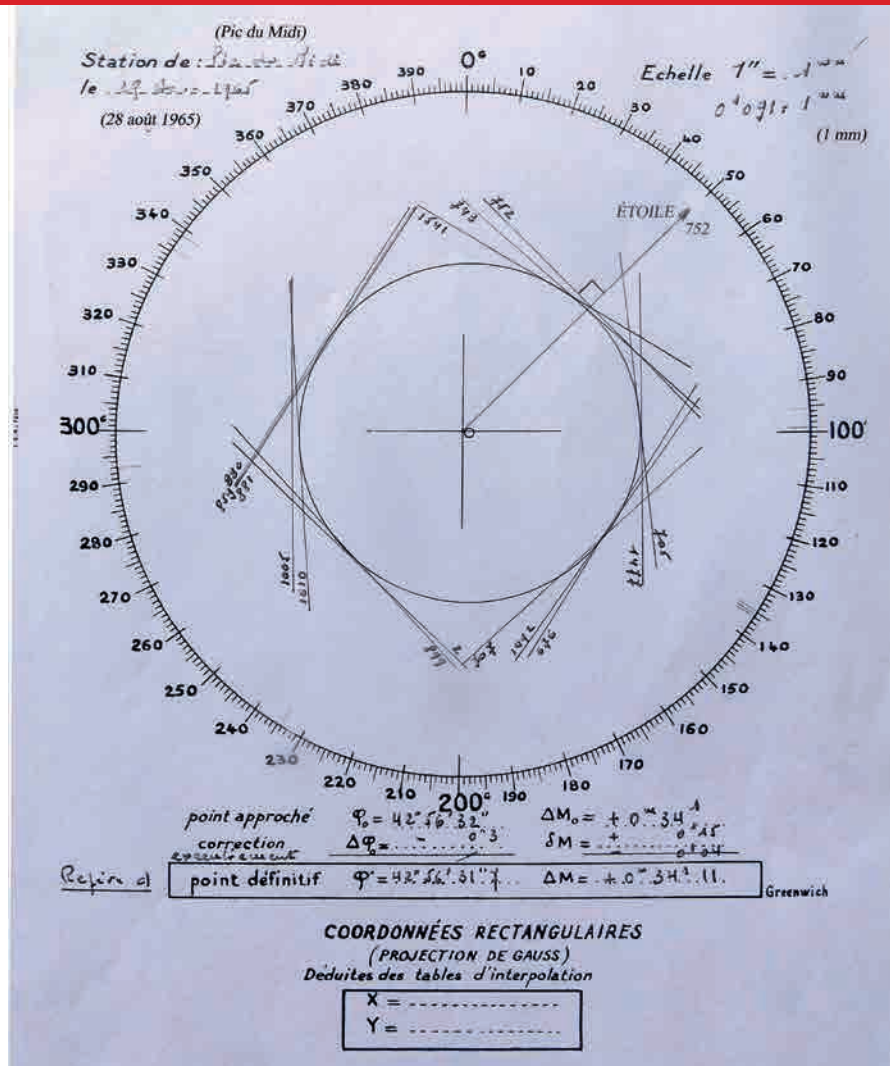 (Pic du Midi)
Station de : Pic du Midi
le 1965
(28 août 1965)
Echelle 1" = 1 mm
1 mm
(1 mm)
0ᴳ
10
20
30
40
50
60
70
80
90
100ᴳ
110
120
130
140
150
160
170
180
190
200ᴳ
210
220
230
240
250
260
270
280
290
300ᴳ
310
320
330
340
350
360
370
380
390
ÉTOILE
752
752
743
1541
830
1005
1010
2
507
1492
676
1477
705
point approché φ₀ = 42° 56' 32" ΔM₀ = + 0ᵐ 34ˢ
correction Δφ₀ = - 0"3 δM = + 0ˢ15
point définitif φ = 42° 56' 31"7 ΔM = + 0ᵐ 34ˢ 11 Greenwich
Repère a)
COORDONNÉES RECTANGULAIRES
(PROJECTION DE GAUSS)
Déduites des tables d'interpolation
X =
Y =